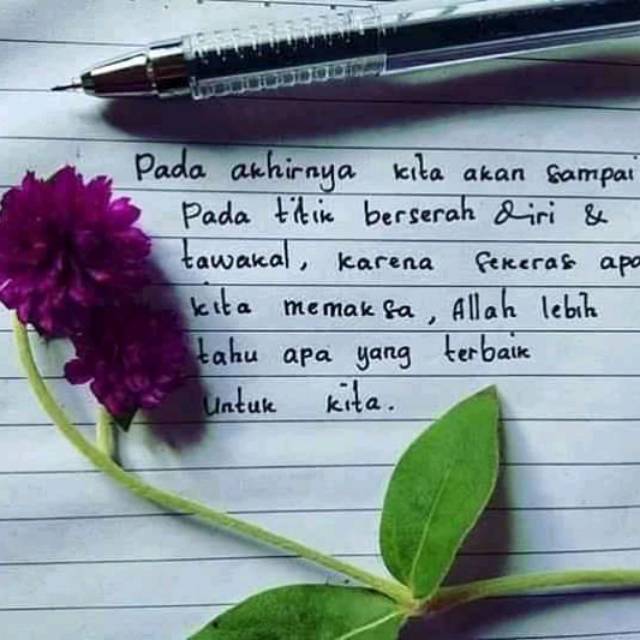 Pada akhirnya kita akan sampai
Pada titik berserah diri &
tawakal, karena sekeras apa
kita memaksa, Allah lebih
tahu apa yang terbaik
untuk kita.